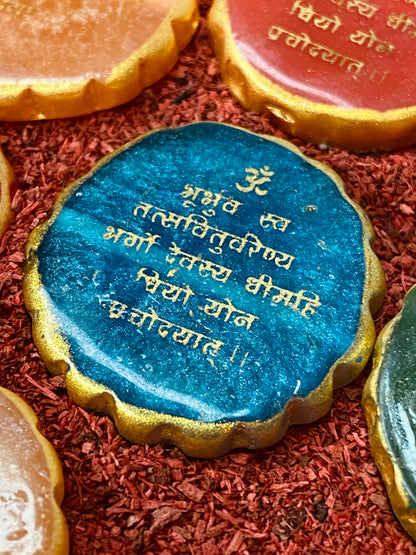 ॐ
भूर्भुव स्व
तत्सवितुर्वरेण्य
भर्गो देवस्य धीमहि
धियो योन
प्रचोदयात् ।।
धियो योन
प्रचोदयात् ।।